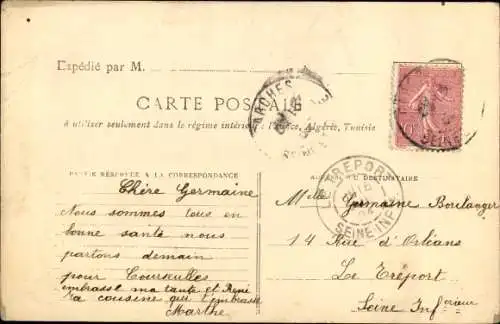 Expédié par M.
CARTE POSTALE
à utiliser seulement dans le régime intérieur : France, Algérie, Tunisie
PARTIE RÉSERVÉE A LA CORRESPONDANCE
DU DESTINATAIRE
Chère Germaine
Nous sommes tous en
bonne santé nous
partons demain
pour Courseulles
embrasse ma tante et René
ta cousine qui t'embrasse
Marthe
Mlle Germaine Boulanger
14 Rue d'Orléans
Le Tréport
Seine Inférieure
LE TREPORT
SEINE INF
ARCHES
10
SEINE